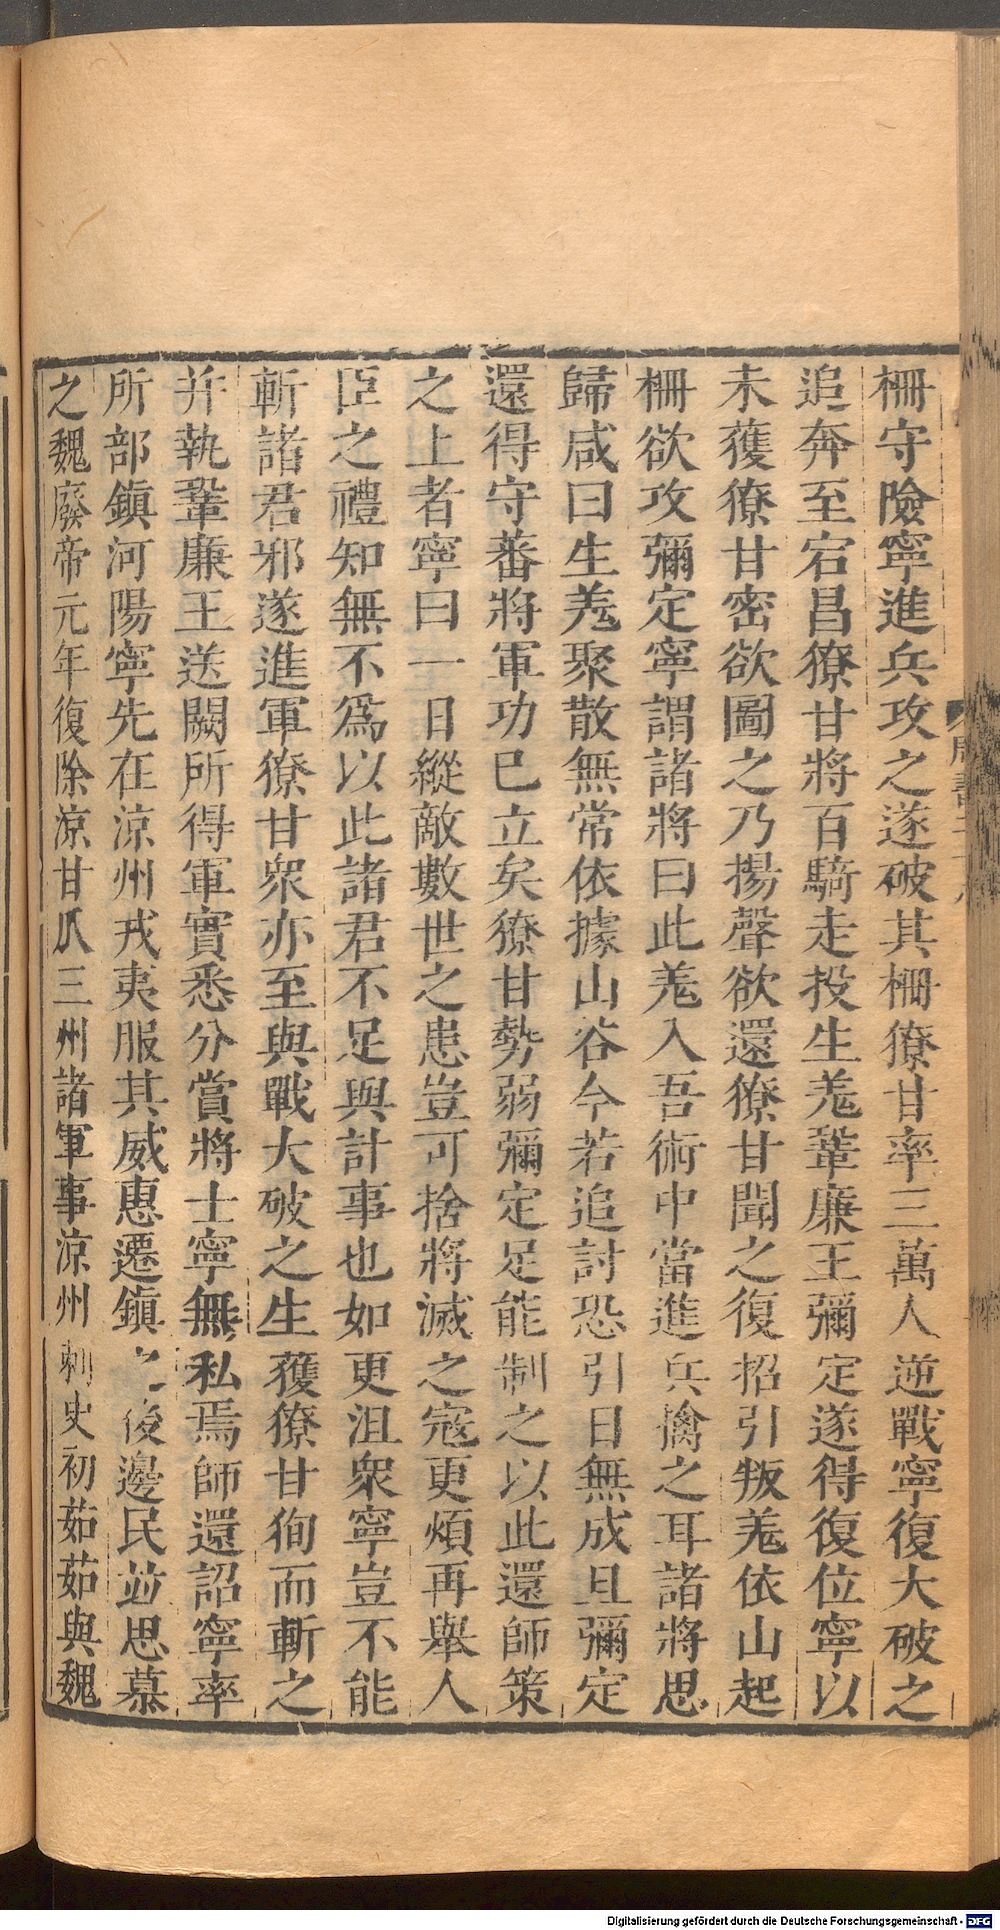 柵守險寧進兵攻之遂破其柵獠甘率三萬人逆戰寧復大破之
追奔至宕昌獠甘將百騎走投生羌鞏廉王彌定遂得復位寧以
未獲獠甘密欲圖之乃揚聲欲還獠甘聞之復招引叛羌依山起
柵欲攻彌定寧謂諸將曰此羌入吾術中當進兵擒之耳諸將思
歸咸曰生羌聚散無常依據山谷今若追討恐引日無成且彌定
還得守蕃將軍功已立矣獠甘勢弱彌定足能制之以此還師策
之上者寧曰一日縱敵數世之患豈可捨將滅之寇更煩再舉人
臣之禮知無不爲以此諸君不足與計事也如更沮衆寧豈不能
斬諸君邪遂進軍獠甘衆亦至與戰大破之生獲獠甘徇而斬之
并執鞏廉王送闕所得軍實悉分賞將士寧無私焉師還詔寧率
所部鎮河陽寧先在涼州戎夷服其威惠遷鎮之後邊民並思慕
之魏廢帝元年復除涼甘瓜三州諸軍事涼州刺史初茹茹與魏
Digitalisierung gefördert durch die Deutsche Forschungsgemeinschaft - DFG